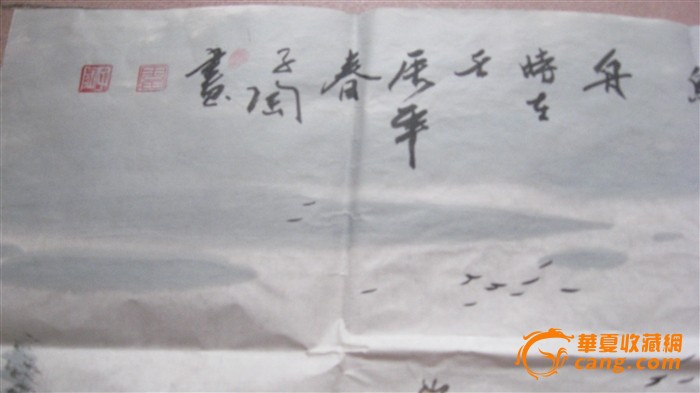 舟
時在
壬
辰年
春
子陶
畫
華夏收藏網
cang.com